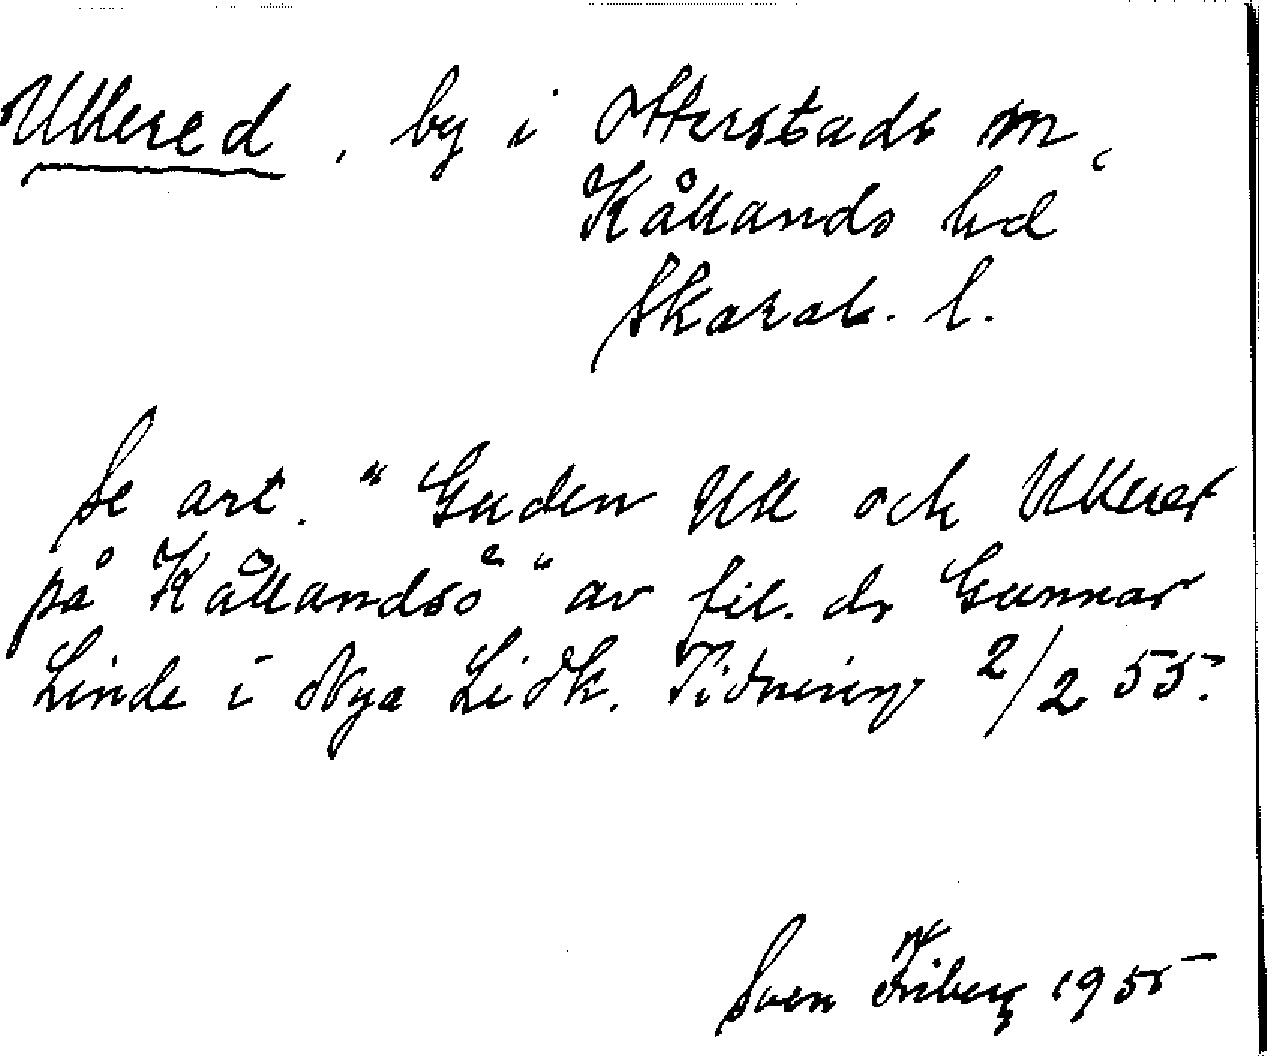 Ullered, by i Otterstads sn,
Kållands hd
Skarab. l.
Se art. "Guden Ull och Ullered
på Kållandsö" av fil. dr Gunnar
Linde i Nya Lidk. Tidning 2/2 55.
Sven Friberg 1955